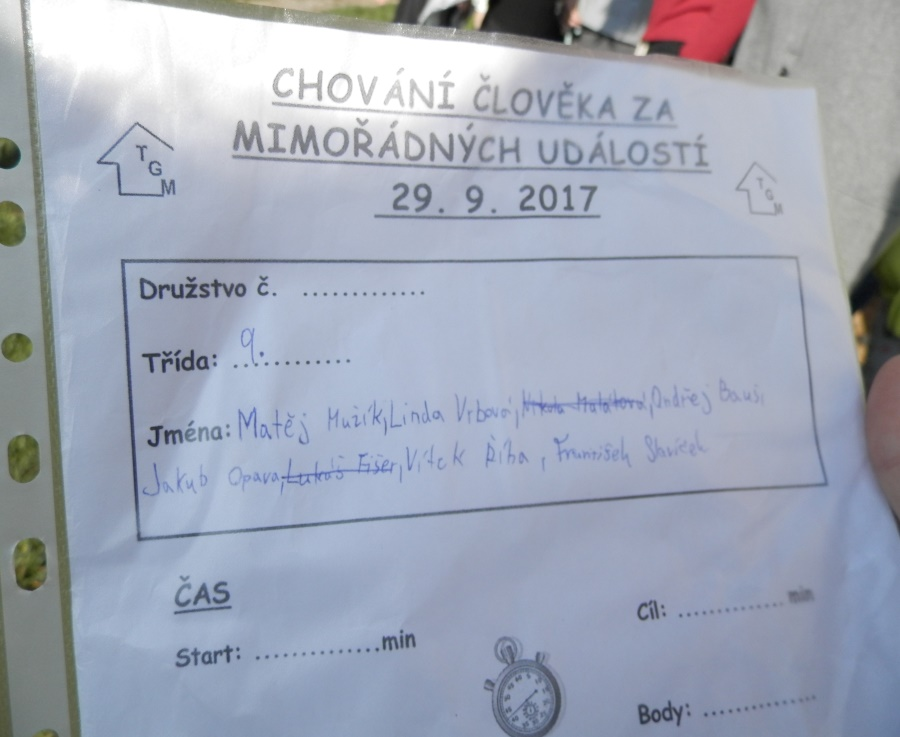 CHOVÁNÍ ČLOVĚKA ZA
MIMOŘÁDNÝCH UDÁLOSTÍ
29. 9. 2017
TGM
TGM
Družstvo č. .............
Třída: 9.
Jména: Matěj Mužík, Linda Vrbová, Nikola Malátová, Ondřej
Jakub Opava, Lukáš Fišer, Vítek Říha, František
ČAS
Cíl: ............. min
Start: .............min
Body: ..............